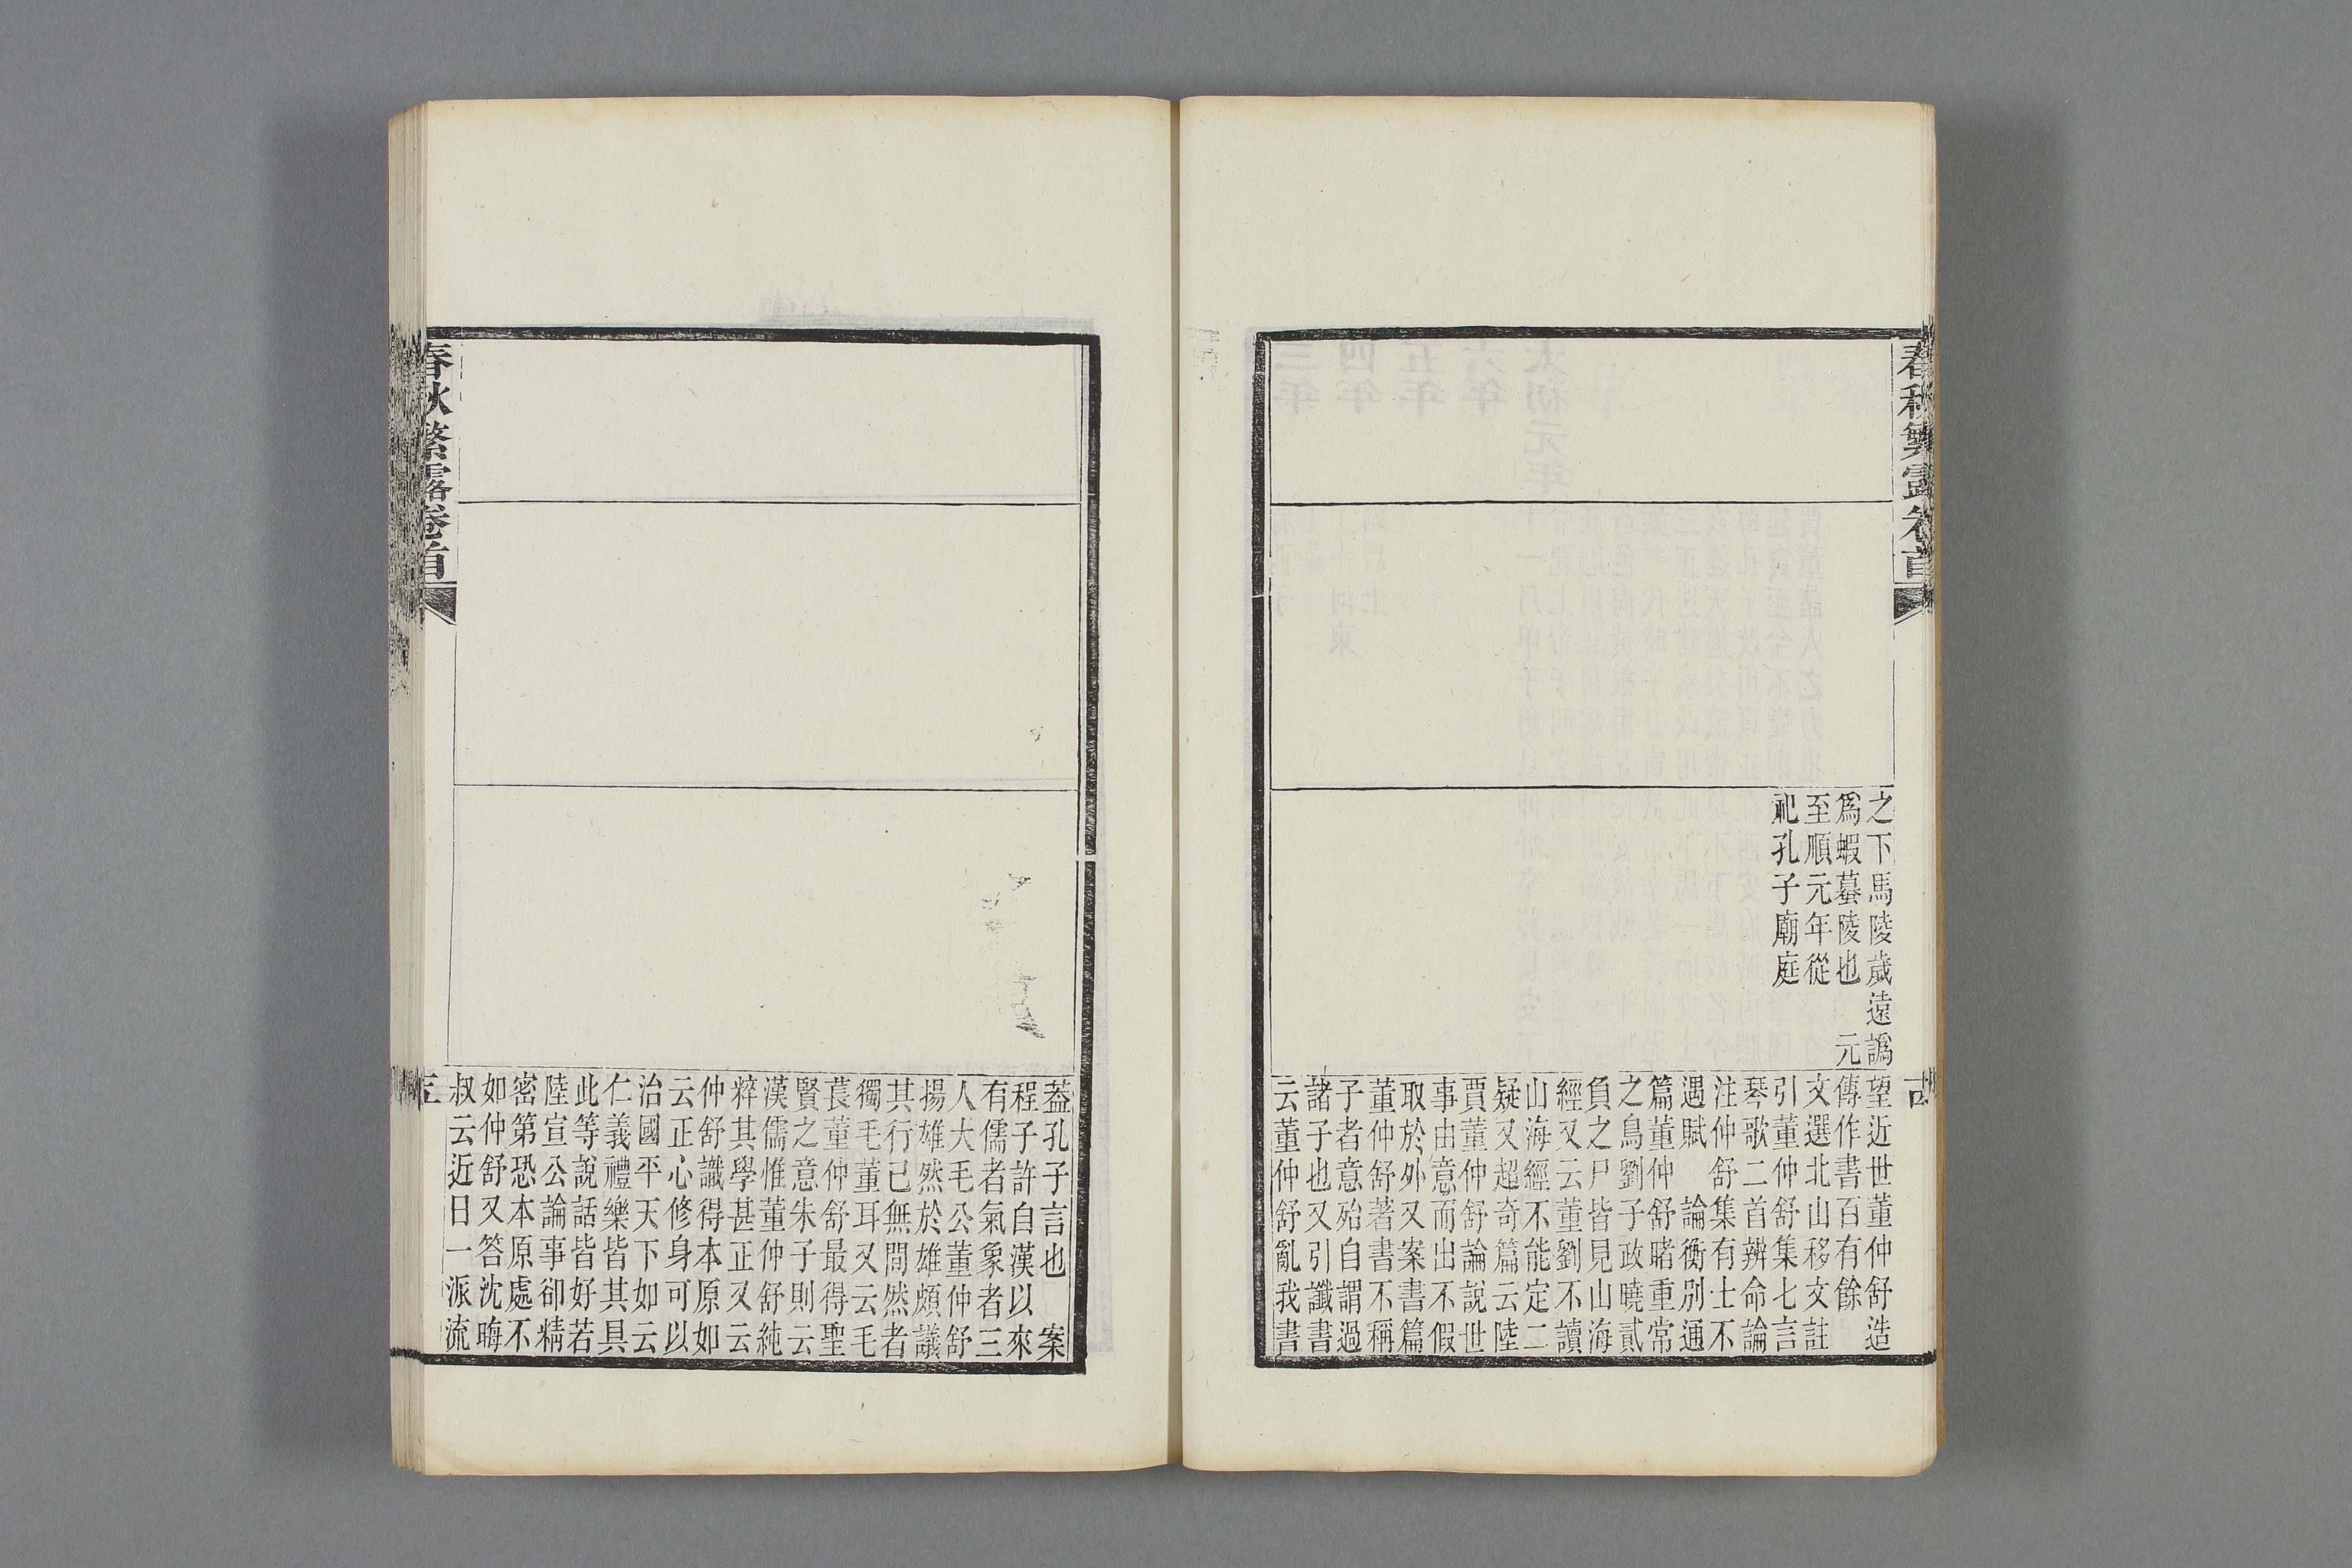 春秋繁露卷首
之下馬陵歲遠譌
爲蝦蟇陵也　元
至順元年從
祀孔子廟庭
望近世董仲舒造
傳作書百有餘
文選北山移文註
引董仲舒集七言
琴歌二首辨命論
注仲舒集有士不
遇賦　論衡別通
篇董仲舒睹重常
之鳥劉子政曉貳
負之尸皆見山海
經又云董劉不讀
山海經不能定二
疑又超奇篇云陸
賈董仲舒論說世
事由意而出不假
取於外又案書篇
董仲舒著書不稱
子者意殆自謂過
諸子也又引讖書
云董仲舒亂我書
蓋孔子言也　案
程子許自漢以來
有儒者氣象者三
人大毛公董仲舒
揚雄然於雄頗議
其行己無間然者
獨毛董耳又云毛
萇董仲舒最得聖
賢之意朱子則云
漢儒惟董仲舒純
粹其學甚正又云
仲舒識得本原如
云正心修身可以
治國平天下如云
仁義禮樂皆其具
此等說話皆好若
陸宣公論事卻精
密第恐本原處不
如仲舒又答沈晦
叔云近日一派流
春秋繁露卷首